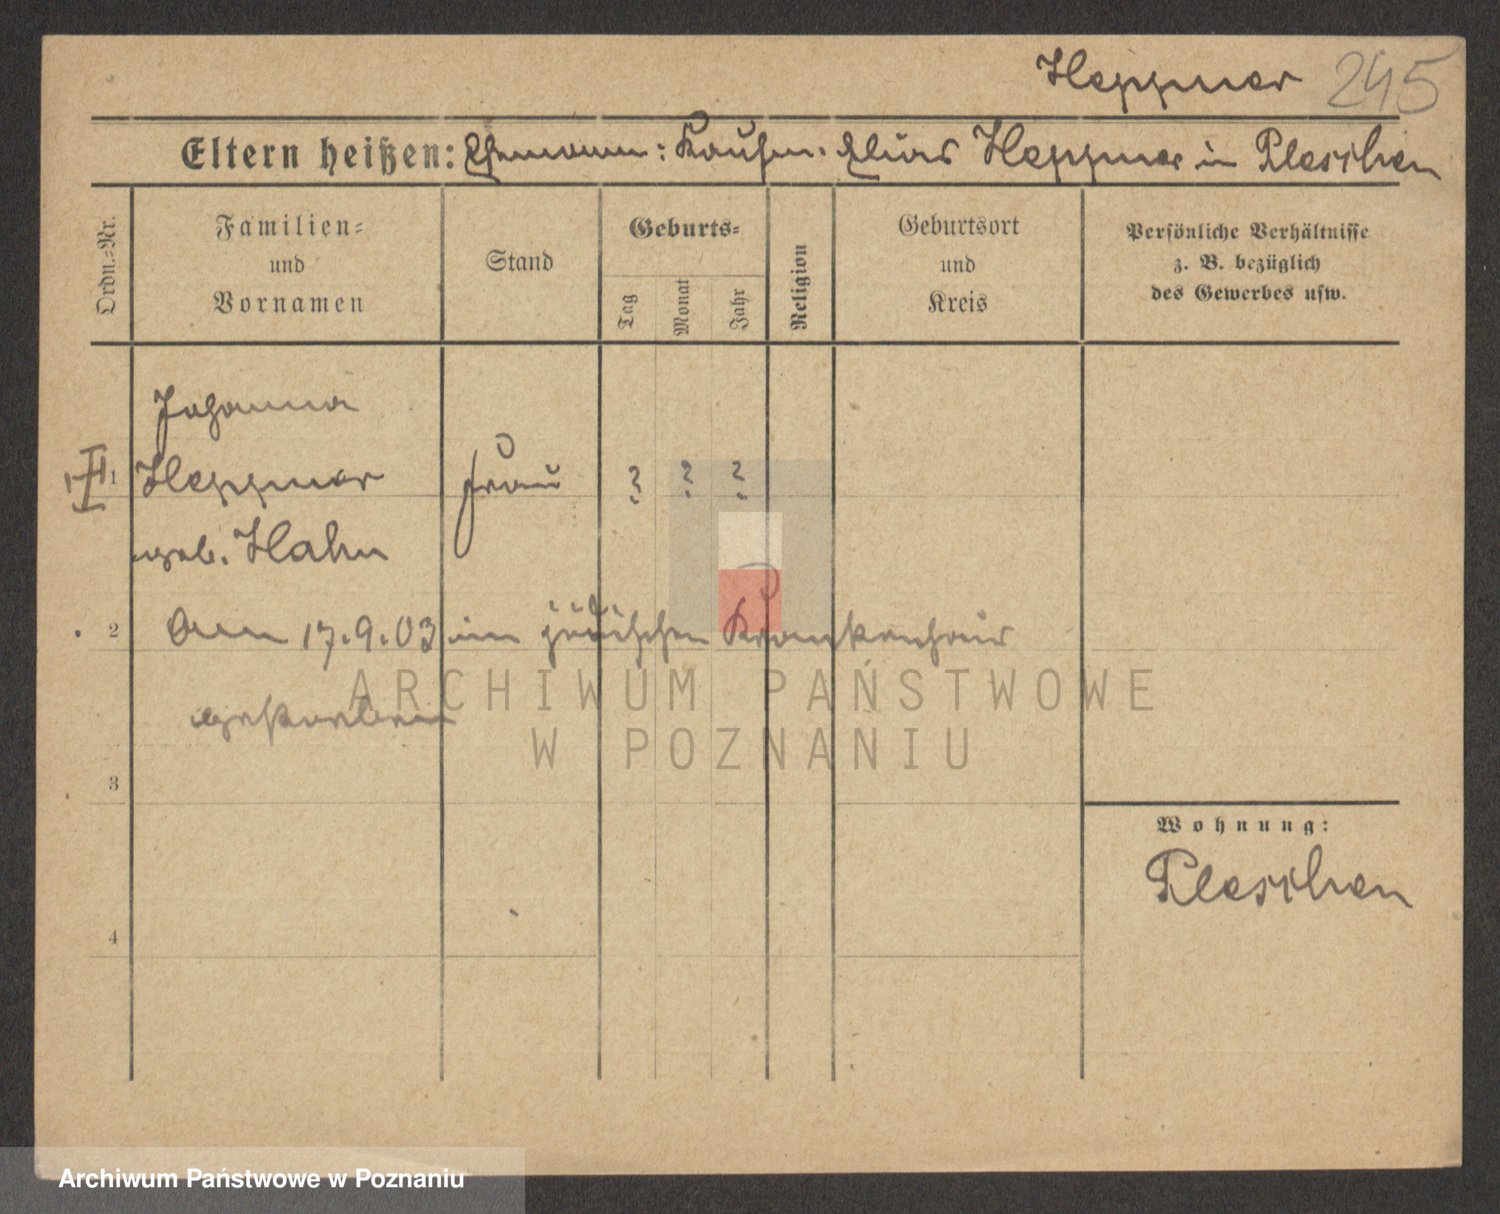 Heppner 245
Eltern heißen: Ehemann: Kaufm. Elias Heppner in Pleschen
Ordn.-Nr.
Familien-
und
Vornamen
Stand
Geburts-
Tag
Monat
Jahr
Religion
Geburtsort
und
Kreis
Persönliche Verhältnisse
z. B. bezüglich
des Gewerbes usw.
Johanna
1 Heppner Frau ? ? ?
geb. Hahn
2 Am 17.9.03 im jüdischen Krankenhaus
gestorben
ARCHIWUM PAŃSTWOWE
W POZNANIU
3
Wohnung:
Pleschen
4
Archiwum Państwowe w Poznaniu